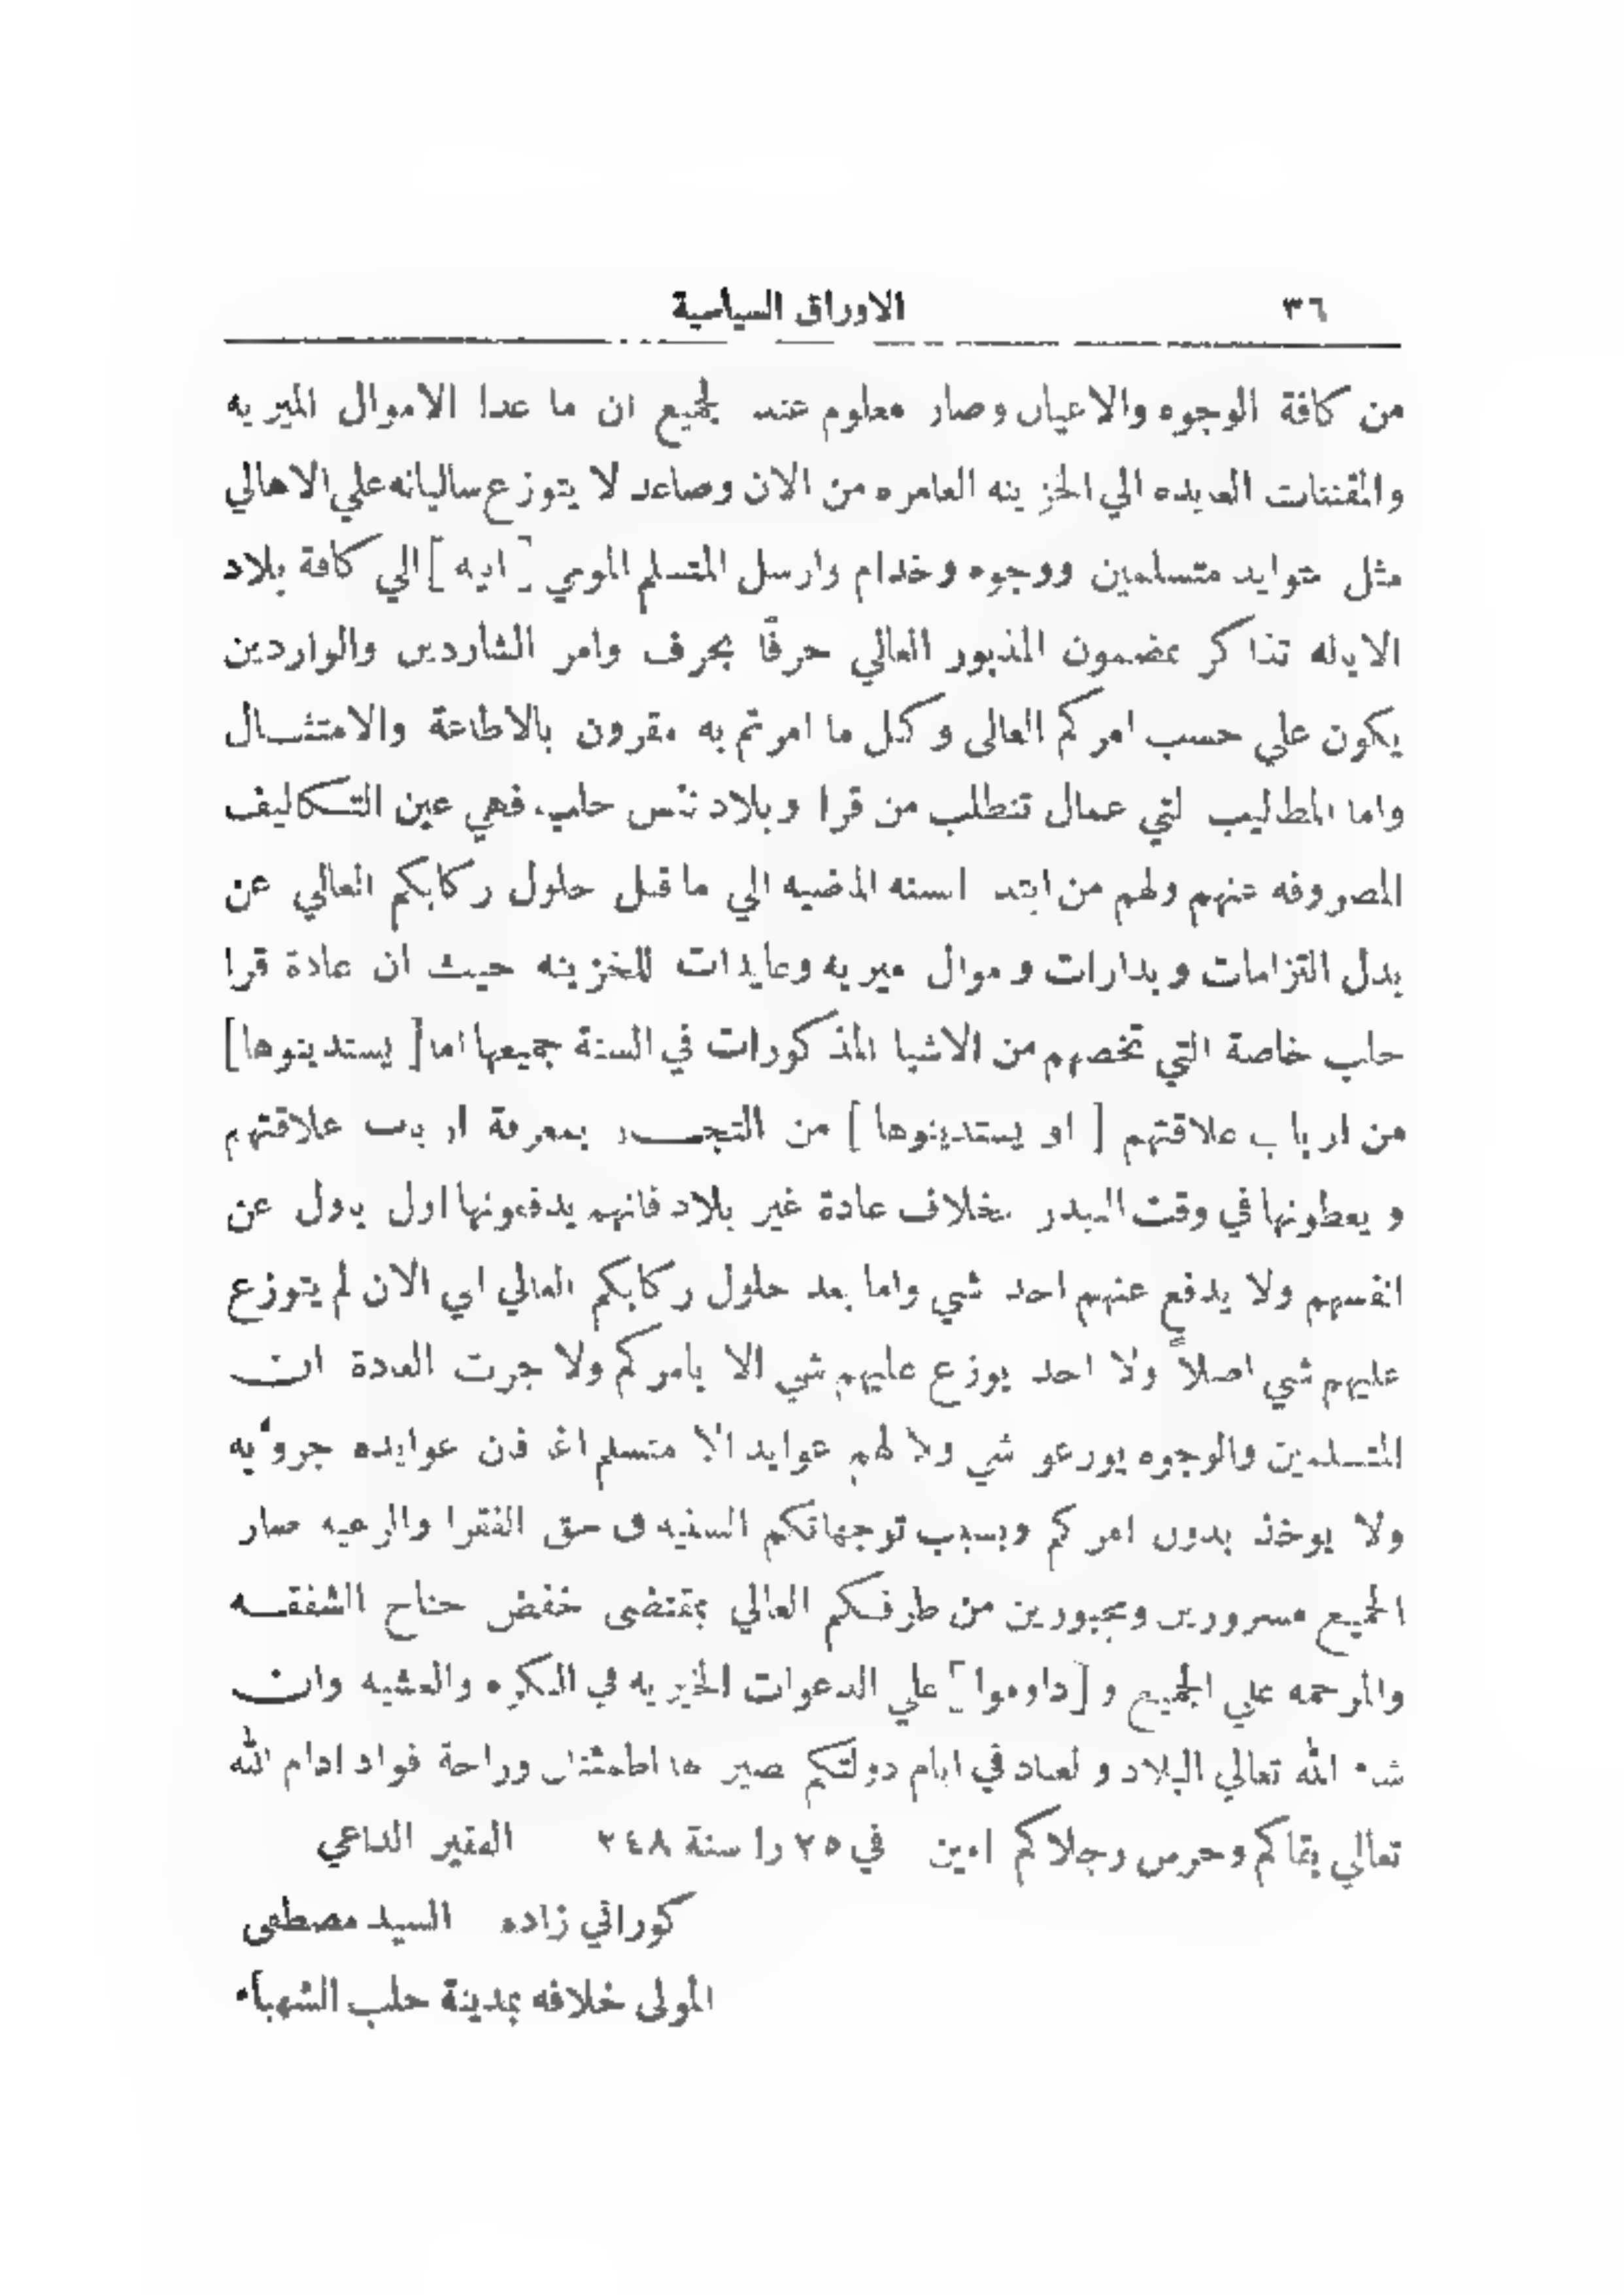 ٣٦ الاوراق السياسية
من كافة الوجوه والاعيان وصار معلوم عند لجميع ان ما عدا الاموال الميريه
والمقننات العايده الي الخزينه العامره من الان وصاعد لا يتوزع ساليانه علي الاهالي
مثل عوايد متسلمين ووجوه وخدام وارسل المتسلم المومي [ اليه ] الي كافة بلاد
الاياله تذاكر بمضمون المذبور العالي حرفًا بحرف وامر الشاردين والواردين
يكون علي حسب امركم العالى وكل ما امرتم به مقرون بالاطاعة والامتثـال
واما المطاليب لتي عمال تنطلب من قرا وبلاد نفس حلب فهي عين التكاليف
المصروفه عنهم ولهم من ابتد السنه الماضيه الي ما قبل حلول ركابكم العالي عن
بدل التزامات وبدارات وموال ميريه وعايدات للخزينه حيث ان عادة قرا
حلب خاصة التي تخصهم من الاشيا المذكورات في السنة جميعها اما [ يستدينوها]
من ارباب علاقتهم [ او يستدينوها ] من التجـار بمعرفة ارباب علاقتهم
ويعطونها في وقت البيدر بخلاف عادة غير بلاد فانهم يدفعونها اول باول عن
انفسهم ولا يدفع عنهم احد شي واما بعد حلول ركابكم العالي الي الان لم يتوزع
عليهم شي اصلاً ولا احد يوزع عليهم شي الا بامركم ولا جرت العادة ان
المتسلمين والوجوه يوزعو شي ولا لهم عوايد الا متسلم اغا فان عوايده جروئيه
ولا يوخذ بدون امركم وبسبب توجهاتكم السنيه في حق الفقرا والرعيه صار
الجميع مسرورين ومجبورين من طرفكم العالي بمقتضى خفض جناح الشفقـه
والمرحمه علي الجميع و [داوموا] علي الدعوات الخيريه في البكره والعشيه وان
شاء الله تعالي البلاد والعباد في ايام دولتكم صير ها اطمئنان وراحة فواد ادام الله
تعالي بقاكم وحرس وجلاكم امين في ٢٥ را سنة ٢٤٨ الفقير الداعي
كوراني زاده السيد مصطفى
المولى خلافه بمدينة حلب الشهباء